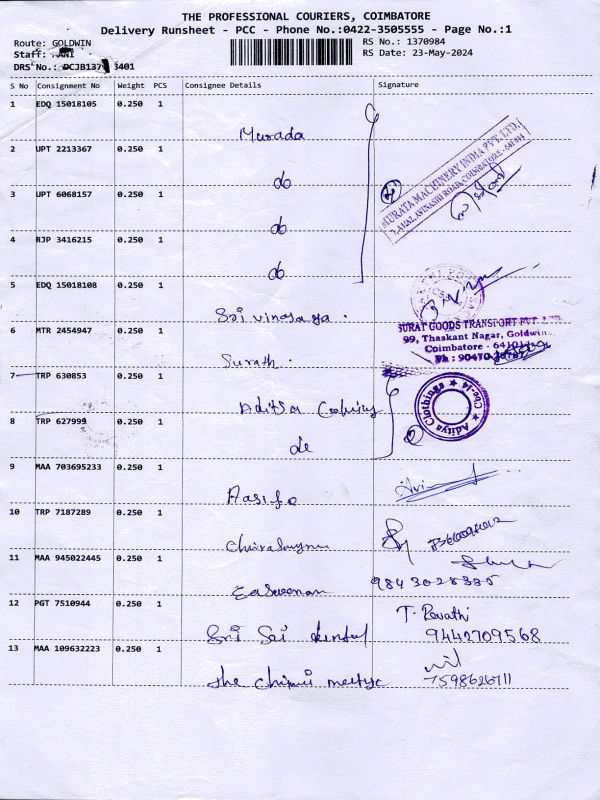 THE PROFESSIONAL COURIERS, COIMBATORE
Delivery Runsheet - PCC - Phone No.:0422-3505555 - Page No.:1
Route: GOLDWIN
RS No.: 1370984
Staff: MANI
RS Date: 23-May-2024
DRS No.:
S No Consignment No Weight PCS Consignee Details Signature
1 EDQ 15018105 0.250 1
Murada
2 UPT 2213367 0.250 1
do
MURATA MACHINERY INDIA PVT. LTD.
AVINASHI ROAD, COIMBATORE - 641 014
3 UPT 6068157 0.250 1
do
4 RJP 3416215 0.250 1
do
5 EDQ 15018108 0.250 1
Sri vinayaga.
6 MTR 2454947 0.250 1
Surath.
SURAT GOODS TRANSPORT PVT.
99, Thaskant Nagar, Goldwins
Coimbatore - 641014
Ph : 90470
7 TRP 630853 0.250 1
Aditya
Aditya Clothings ★ Cbe-14 ★
8 TRP 627999 0.250 1
do
9 MAA 703695233 0.250 1
10 TRP 7187289 0.250 1
11 MAA 945022445 0.250 1
Easwaran
9843028335
12 PGT 7510944 0.250 1
Sri Sai dental
T. Revathi
9442709568
13 MAA 109632223 0.250 1
the
7598626111